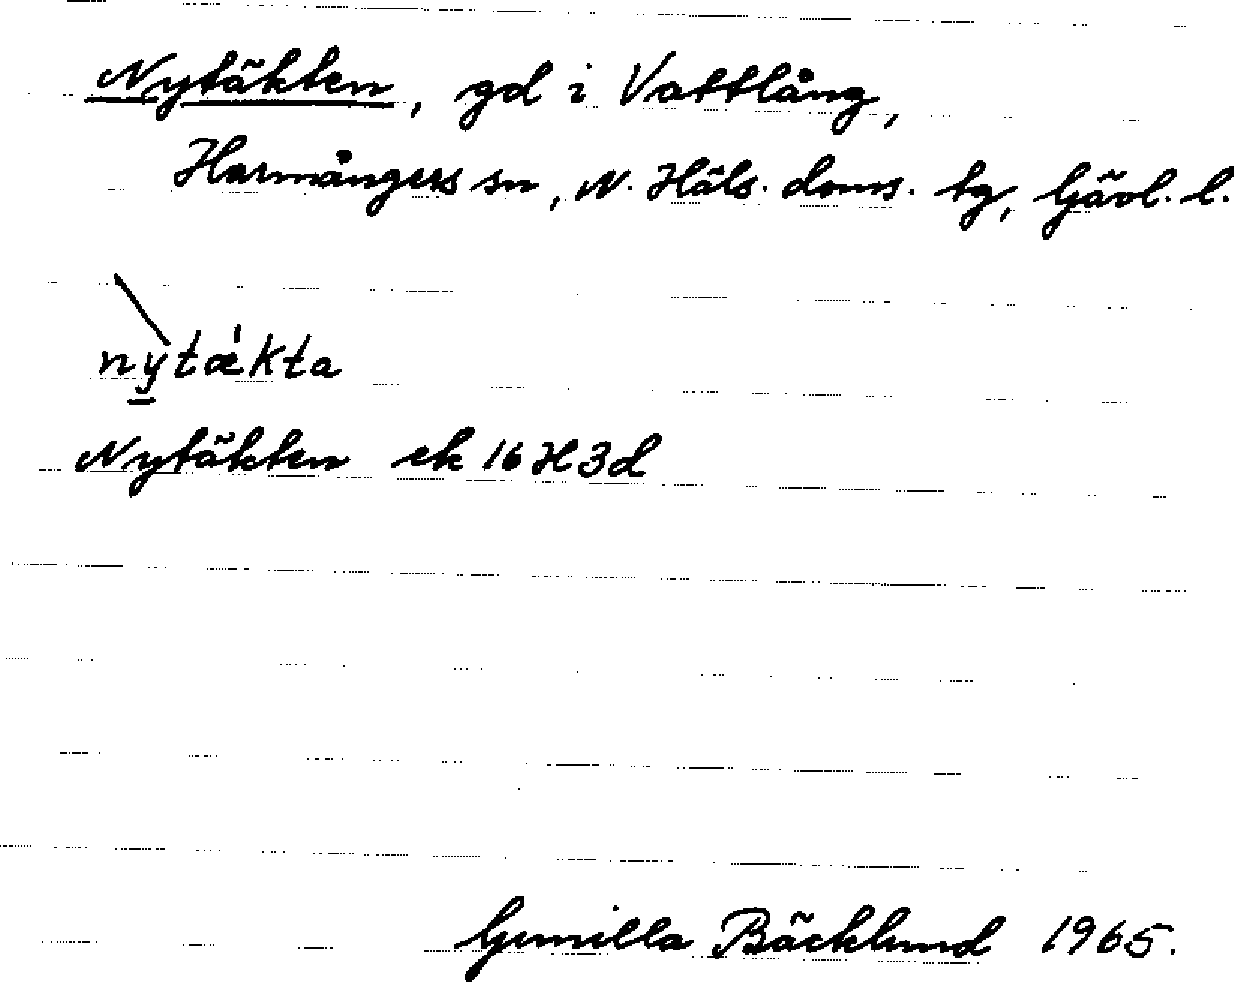 Nytäkten, gd i Vattlång,
Harmångers sn, N. Häls. doms. tg, Gävl. l.
nytǽkta
Nytäkten ek 16H3d
Gunilla Bäcklund 1965.